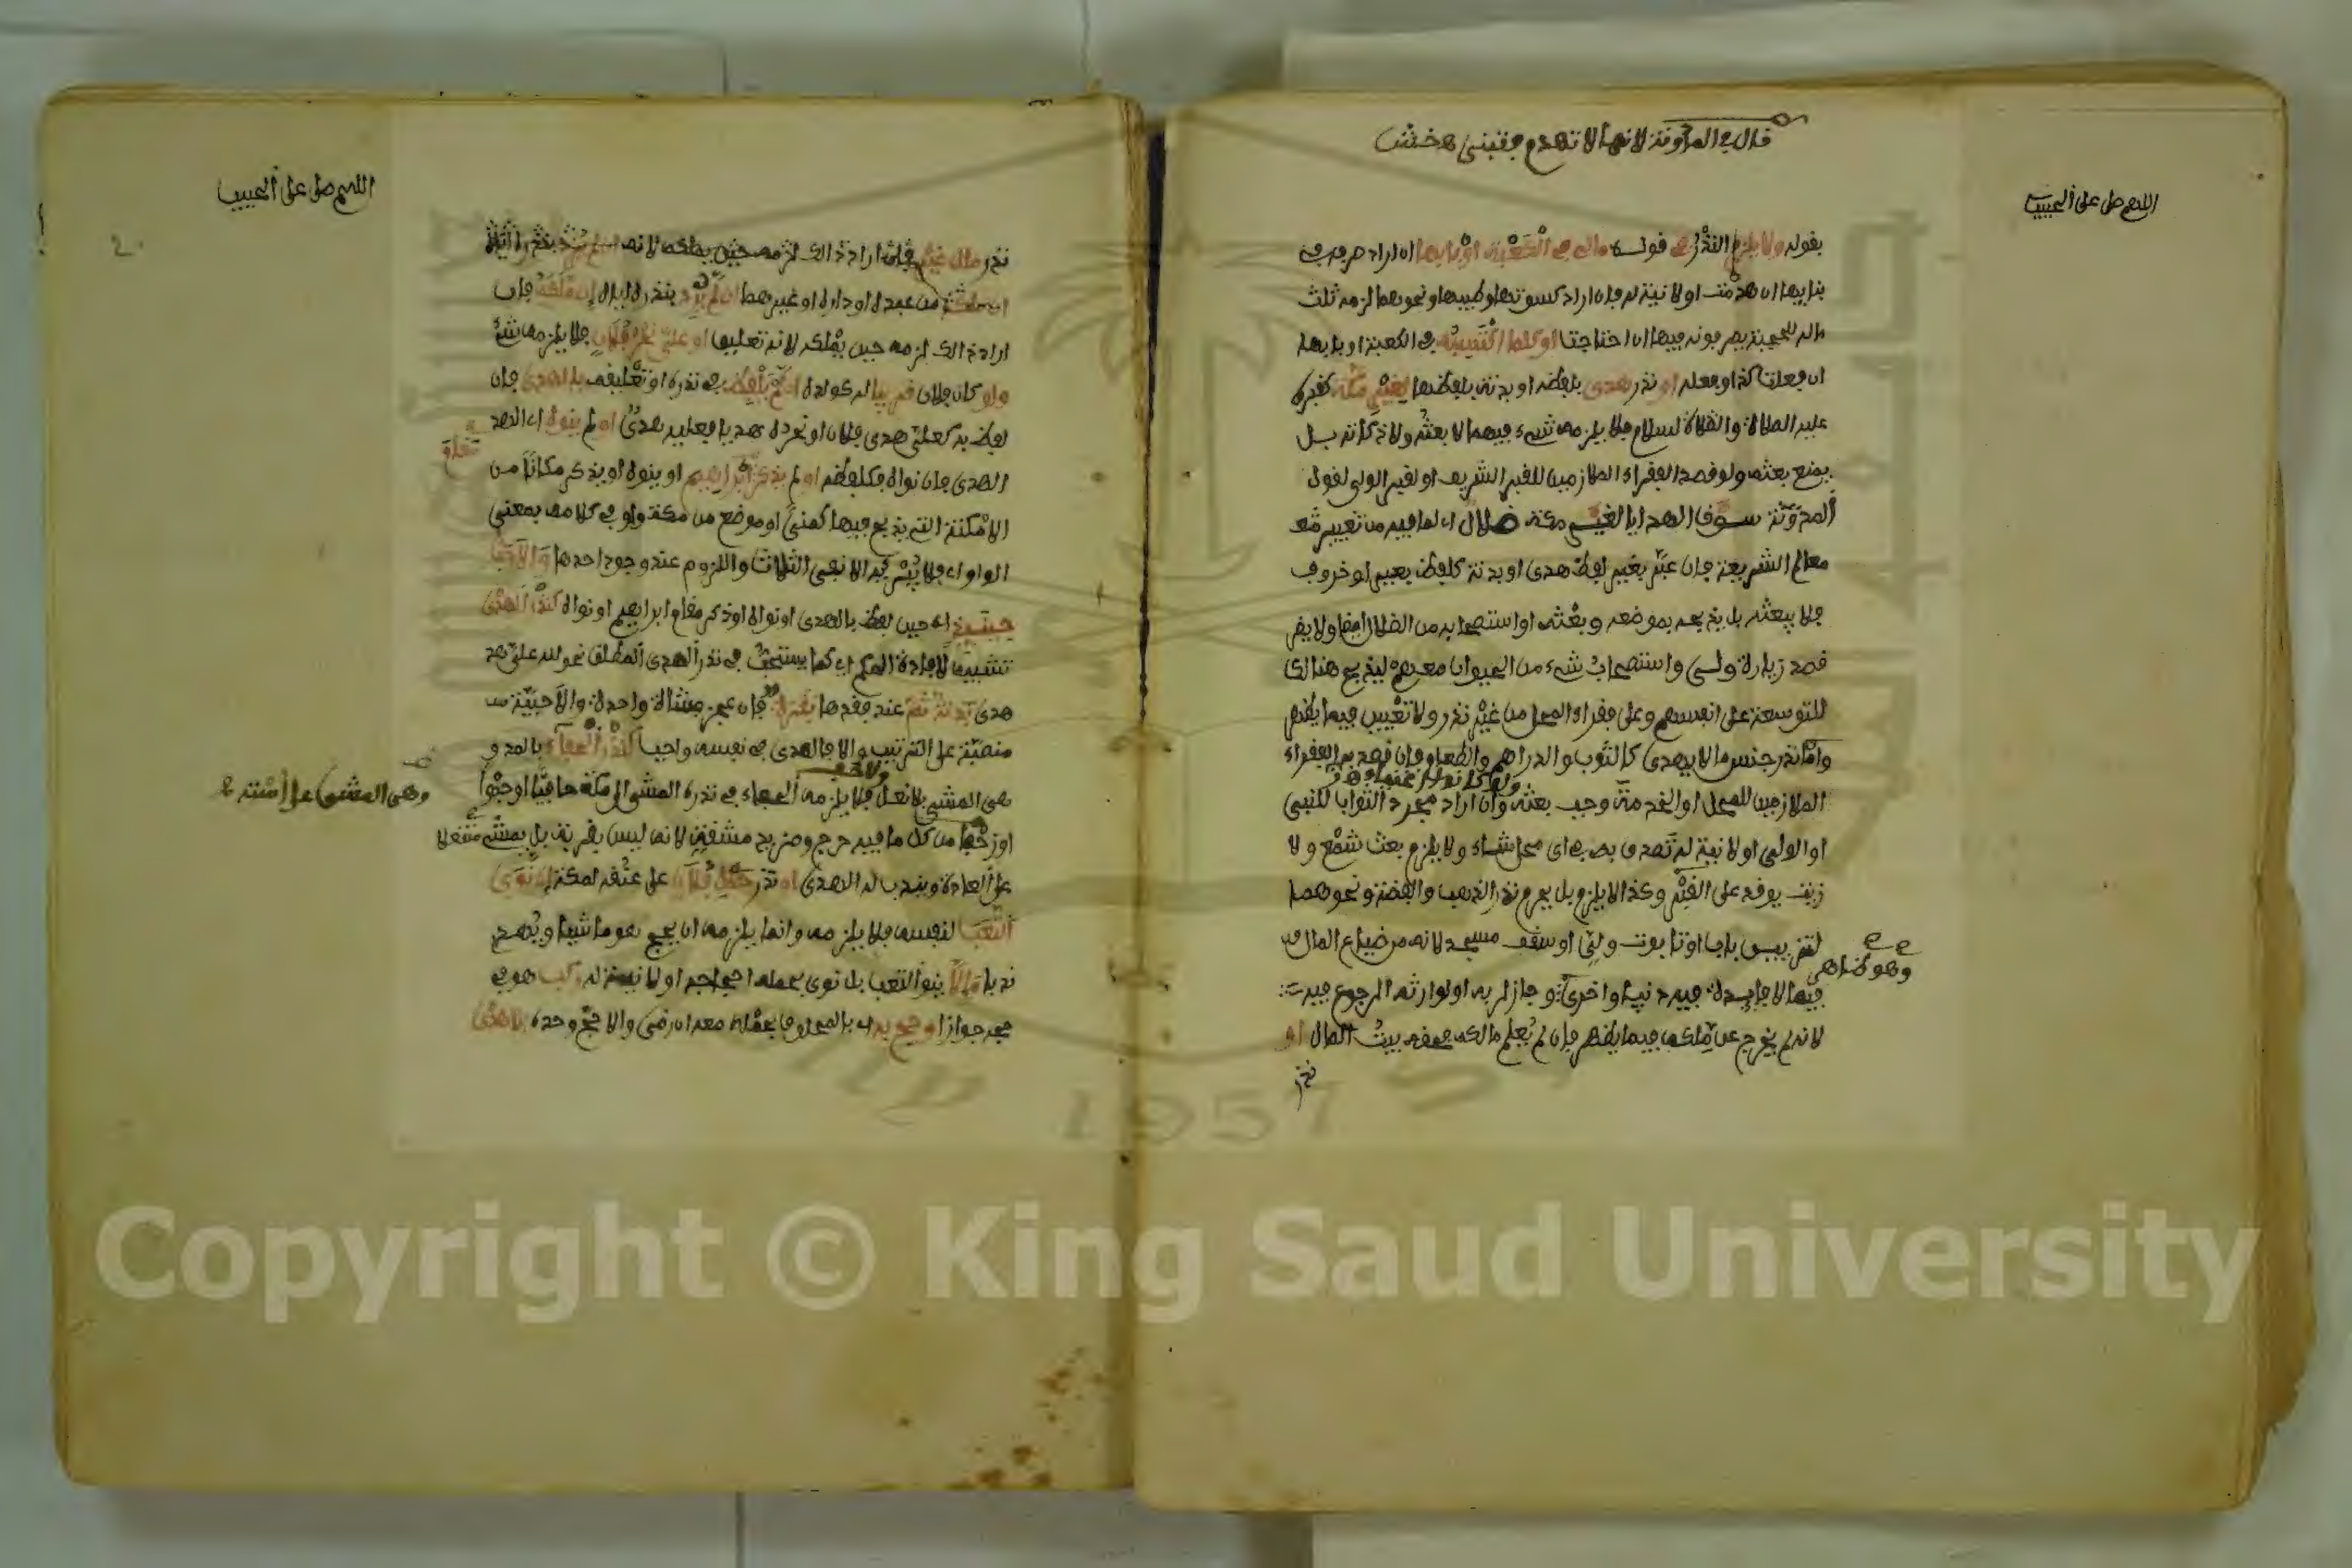 قال في المدونة لانها لا تهدم فتبنى
اللهم صل على الحبيب
بقوله ولا يلزم النذر في قوله مالي في الكعبة او بابها ان اراد صرفه في
بنايها ان هدمت او لا نية له فان اراد كسوتها وطيبها ونحوهما لزمه ثلث
ماله للحجبة يصرفونه فيها ان احتاجت او كلما اكتسبته في الكعبة او بابها
ان فعلت كذا وفعله او نذر هدي بلفظه او بدنة بلفظها لغير مكة كقبره
عليه الصلاة والسلام فلا يلزمه شيء فيهما لا بعثه ولا ذكاته بل
يمنع بعثه ولو قصد الفقراء الملازمين للقبر الشريف او لقبر الولي لقول
المدونة سوق الهدايا لغير مكة ضلال اي لما فيه من تغيير
معالم الشريعة فان عبر بغير لفظ هدي او بدنة كلفظ بعير او خروف
فلا يبعثه بل يذبحه بموضعه وبعثه او استصحابه من الضلال ايضا ولا يضر
قصد زيارة ولي واستصحاب شيء من الحيوان معه ليذبح هنالك
للتوسعة على انفسهم وعلى فقراء المحل من غير نذر ولا تعيين فيما يظهر
واما نذر جنس ما لا يهدى كالثوب والدراهم والطعام فان قصد به الفقراء
الملازمين للمحل او الخدمة وجب بعثه وان اراد مجرد الثواب للنبي
او الولي او لا نية له تصدق به في اي محل شاء ولا يلزم بعث شمع ولا
زيت يوقد على القبر وكذا لا يلزم بل يحرم نذر الذهب والفضة ونحوهما
لتزيين باب او تابوت ولي او سقف مسجد لانه من ضياع المال
وهو ظاهر
فيما لا فايدة فيه دنيا واخرى وجاز لربه او لوارثه الرجوع فيه
لانه لم يخرج عن ملكه فيما يظهر فان لم يعلم مالكه فمحله بيت المال او
نذر
اللهم صل على الحبيب
نذر مال غير
ان ملكته من عبده او داره او غيرهما ان لم يرد بنذره اياه ان ملكه فان
اراد ذلك لزمه حين يملكه لانه تعليق او علي نحر فلان فلا يلزمه شيء
ولو كان فلان قريبا له كولده ان لم يلفظ في نذره او تعليقه بالهدي فان
لفظ به كعلي هدي فلان او نحره هديا فعليه هدي او لم ينوه اي الهد
الهدي فان نواه فكلفظه او لم يذكر ابراهيم او ينوه او يذكر مكانا من
مقام
الامكنة التي يذبح فيها كمنى او موضع من مكة واو في كلامه بمعنى
الواو اي فلا يشترط الا نفي الثلاث واللزوم عند وجود احدها والاحب
حينئذ اي حين لفظ بالهدي او نواه او ذكر مقام ابراهيم او نواه كنذر الهدي
تشبيها لافادة الحكم اي كما يستحب في نذر الهدي المطلق نحو لله علي هد
هدي بدنة ثم عند فقدها بقرة فان عجز فشاة واحدة والاحبية
منصبة على الترتيب والا فالهدي في نفسه واجب كنذر الحفاء بالمد و
هي المشي بلا نعل فلا يلزمه الحفاء في نذره المشي الى مكة حافيا او حبوا
وهي المشي على استه
او زحفا من كل ما فيه حرج ومزيد مشقة لانه ليس بقربة بل يمشي منتعلا
على العادة ويندب له الهدي او نذر حمل فلان على عنقه لمكة ان نوى
التعب لنفسه فلا يلزمه وانما يلزمه ان يحج هو ماشيا ويهدي
ندبا والا ينو التعب بل نوى بحمله احجاجه او لا نية له ركب هو في
حجه جوازا وحج به اي بالمحلوف بحمله معه ان رضي والا حج وحده بلا هدي
Copyright © King Saud University
1957